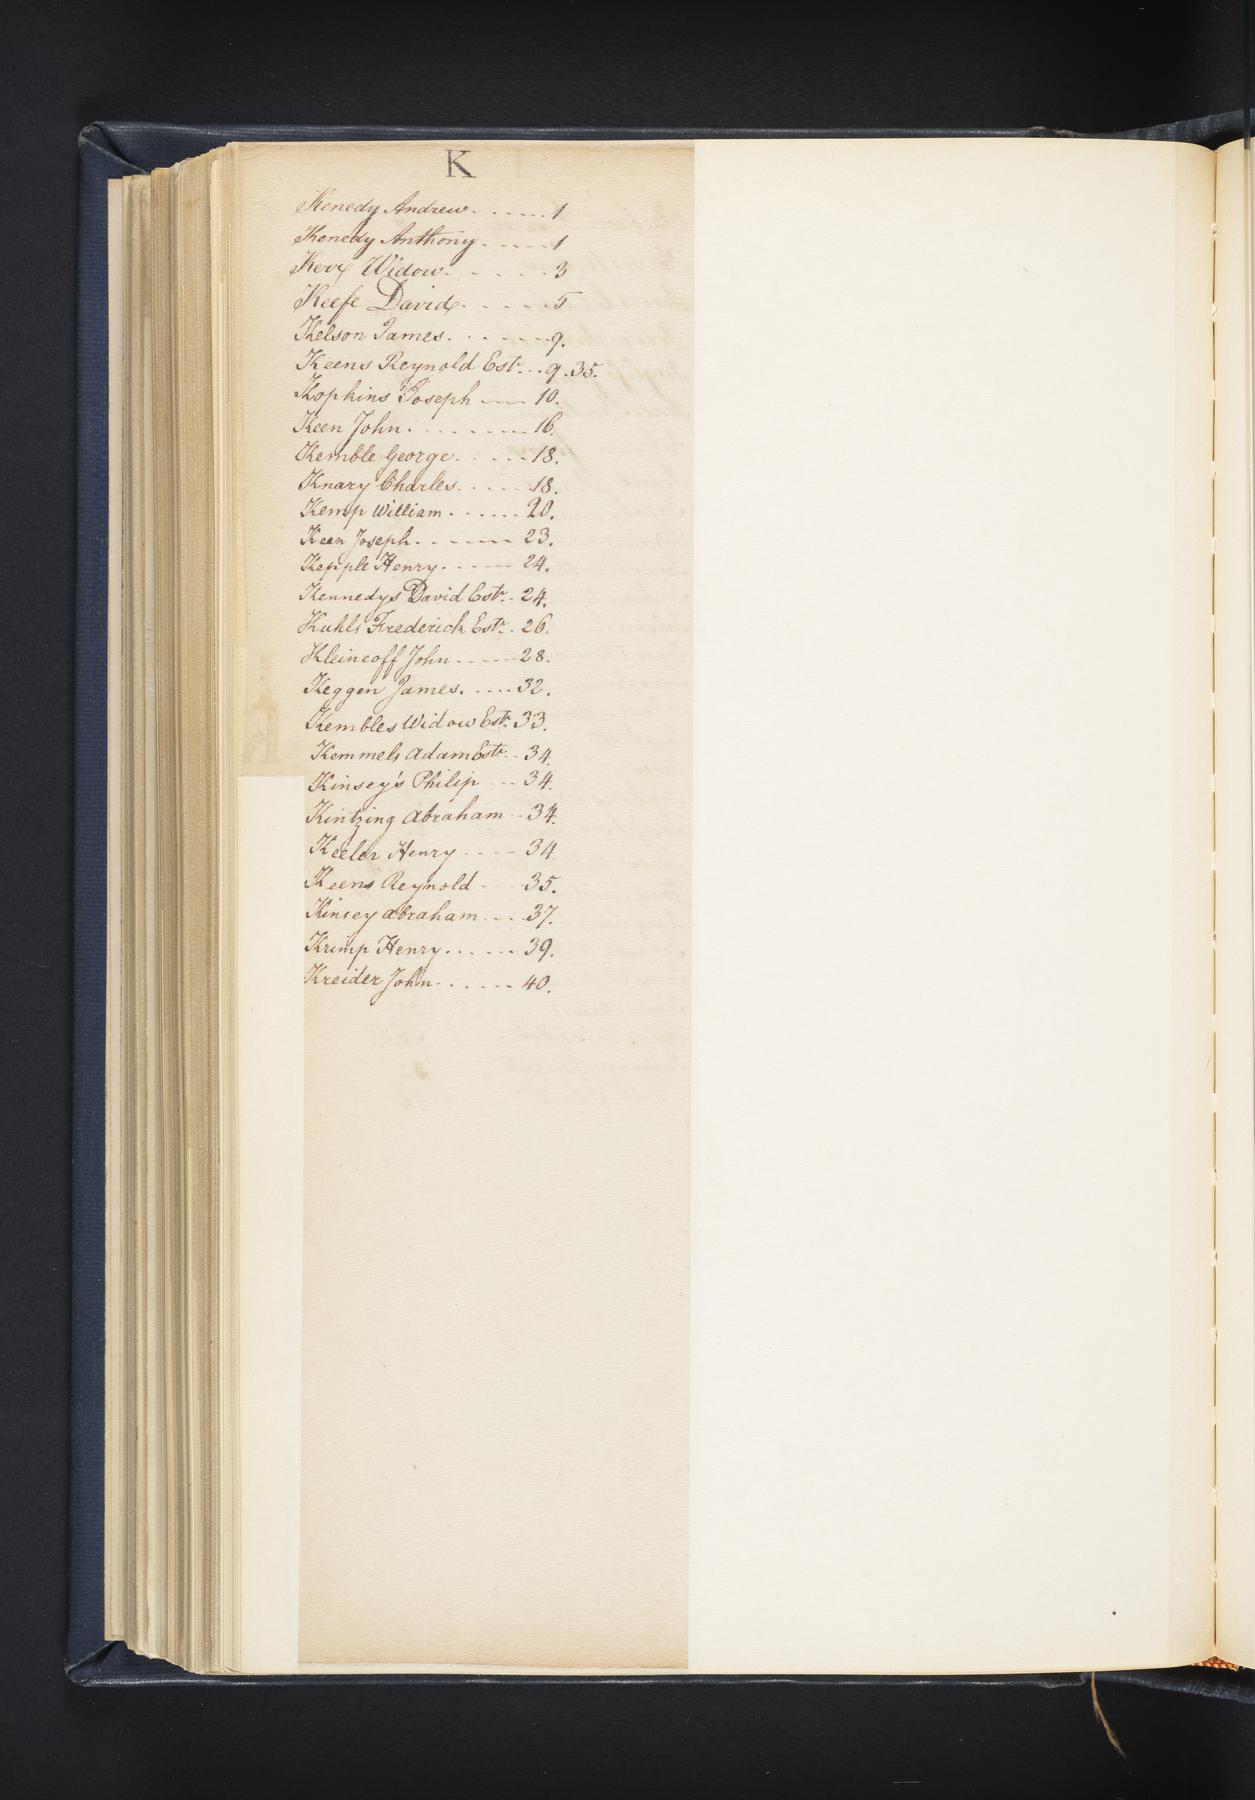 K
Kenedy Andrew. ...... 1
Kenedy Anthony. ..... 1
Widow. ..... 3
Keefe David. ..... 5
Kelson James. ...... 9.
Keens Reynold Estr. .. 9.35.
Kopkins Joseph ---- 10.
Keen John. ........ 16.
Kemble George. ..... 18.
Knary Charles. ..... 18.
Kemp William. ...... 20.
Keen Joseph. ------- 23.
Kepple Henry. ----- 24.
Kennedys David Estr. . 24.
Kuhls Frederick Estr. . 26.
Kleineoff John ----- 28.
Keggen James. .... 32.
Kembles Widow Estr. 33.
Kemmels Adam Estr. .. 34.
Kinsey's Philip --- 34.
Kintzing Abraham .. 34.
Keeler Henry ---- 34
Keens Reynold - 35.
Kinsey Abraham. ... 37.
Krimp Henry. ..... 39.
Kreider John. ..... 40.